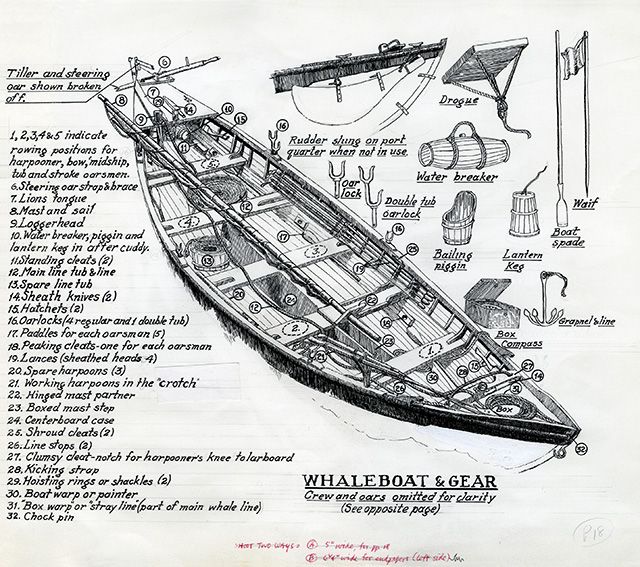 Tiller and steering
oar shown broken
off.
1, 2, 3, 4 & 5 indicate
rowing positions for
harpooner, bow, midship,
tub and stroke oarsmen.
6. Steering oar strap & brace
7. Lions tongue
8. Mast and sail
9. Loggerhead
10. Water breaker, piggin and
lantern keg in after cuddy.
11. Standing cleats (2)
12. Main line tub & line
13. Spare line tub
14. Sheath knives (2)
15. Hatchets (2)
16. Oarlocks (4 regular and 1 double tub)
17. Paddles for each oarsman (5)
18. Peaking cleats-one for each oarsman
19. Lances (sheathed heads-4)
20. Spare harpoons (3)
21. Working harpoons in the "crotch"
22. Hinged mast partner
23. Boxed mast step
24. Centerboard case
25. Shroud cleats (2)
26. Line stops (2)
27. Clumsy cleat-notch for harpooner's knee to larboard
28. Kicking strap
29. Hoisting rings or shackles (2)
30. Boat warp or painter
31. "Box warp" or "stray line" (part of main whale line)
32. Chock pin
Rudder slung on port
quarter when not in use.
Drogue
Water breaker
Oar
lock
Double tub
oarlock
Bailing
piggin
Lantern
Keg
Boat
spade
Waif
Box
Compass
Grapnel & line
Box
WHALEBOAT & GEAR
Crew and oars omitted for clarity
(See opposite page)
P18
SHOOT TWO WAYS:
A 5" wide, for pp 18
B 6¼" wide for endpapers (left side)